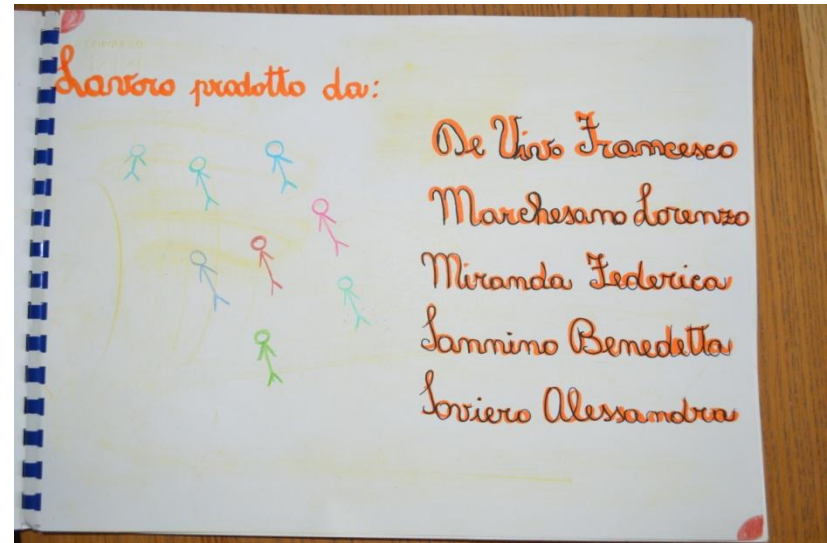 Lavoro prodotto da:
De Vivo Francesco
Marchesano Lorenzo
Miranda Federica
Sannino Benedetta
Soviero Alessandra